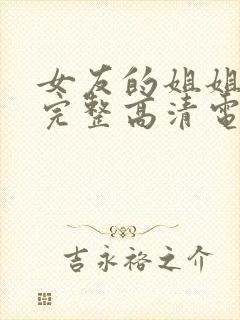 女友的姐姐
完整高清電
吉永裕之介